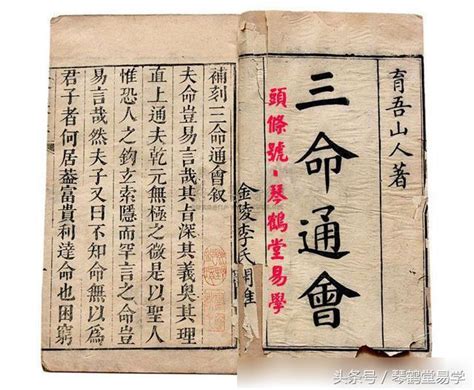 育吾山人著
三命通會
頭條號·琴鶴堂易學
金陵李氏
補刻三命通會叙
夫命豈易言哉其旨深其義奧其理
直上通夫乾元無極之微是以聖人
惟恐人之鉤玄索隱而罕言之命豈
易言哉然夫子又曰不知命無以為
君子者何居葢富貴利達命也困窮
头条号 / 琴鶴堂易学